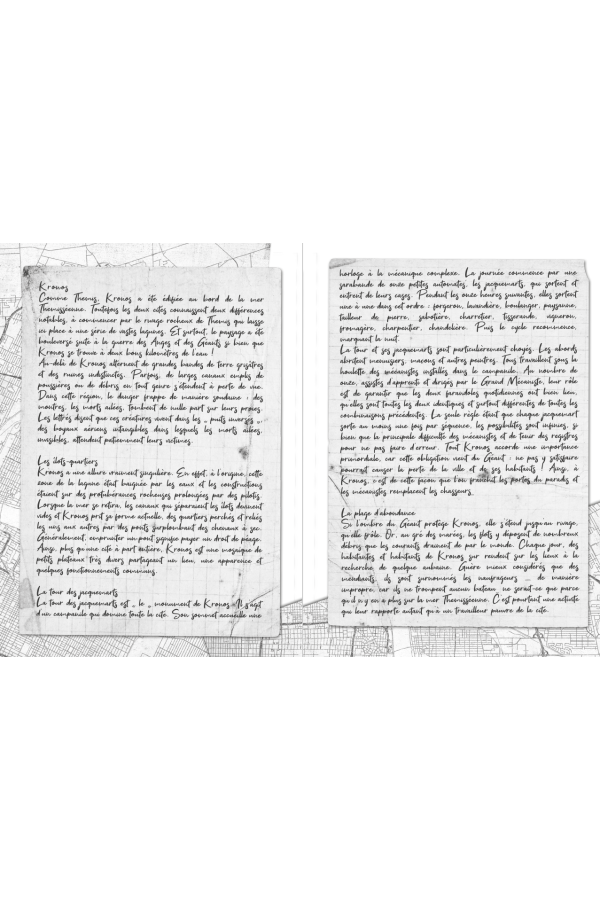 Kronos
Comme Themis, Kronos a été édifiée au bord de la mer
Themisséenne. Toutefois les deux cités connaissent deux différences
notables, à commencer par le rivage rocheux de Themis qui laisse
ici place à une série de vastes lagunes. Et surtout, le paysage a été
bouleversé suite à la guerre des Anges et des Géants si bien que
Kronos se trouve à deux bons kilomètres de l'eau !
Au-delà de Kronos alternent de grandes bandes de terre grisâtres
et des ruines indistinctes. Parfois, de larges canaux emplis de
poussières ou de débris en tout genre s'étendent à perte de vue.
Dans cette région, le danger frappe de manière soudaine : des
monstres, les morts ailées, tombent de nulle part sur leurs proies.
Les lettrés disent que ces créatures vivent dans les „ puits inversés „,
des boyaux aériens intangibles dans lesquels les morts ailées,
invisibles, attendent patiemment leurs victimes.
Les îlots-quartiers
Kronos a une allure vraiment singulière. En effet, à l'origine, cette
zone de la lagune était baignée par les eaux et les constructions
étaient sur des protubérances rocheuses prolongées par des pilotis.
Lorsque la mer se retira, les canaux qui séparaient les îlots devinrent
vides et Kronos prit sa forme actuelle, des quartiers perchés et reliés
les uns aux autres par des ponts surplombant des chenaux à sec.
Généralement, emprunter un pont signifie payer un droit de péage.
Ainsi, plus qu'une cité à part entière, Kronos est une mosaïque de
petits plateaux très divers partageant un lieu, une apparence et
quelques fonctionnements communs.
La tour des jacquemarts
La tour des jacquemarts est „ le „ monument de Kronos. Il s'agit
d'un campanile qui domine toute la cité. Son sommet accueille une
horloge à la mécanique complexe. La journée commence par une
sarabande de onze petites automates, les jacquemarts, qui sortent et
entrent de leurs cases. Pendant les onze heures suivantes, elles sortent
une à une dans cet ordre : forgeron, lavandière, boulanger, paysanne,
tailleur de pierre, sabotière, charretier, tisserande, vigneron,
fromagère, charpentier, chandelière. Puis le cycle recommence,
marquant la nuit.
La tour et ses jacquemarts sont particulièrement choyés. Les abords
abritent menuisiers, maçons et autres peintres. Tous travaillent sous la
houlette des mécanistes installés dans le campanile. Au nombre de
onze, assistés d'apprentis et dirigés par le Grand Mécaniste, leur rôle
est de garantir que les deux farandoles quotidiennes ont bien lieu,
qu'elles sont toutes les deux identiques et surtout différentes de toutes les
combinaisons précédentes. La seule règle étant que chaque jacquemart
sorte au moins une fois par séquence, les possibilités sont infinies, si
bien que la principale difficulté des mécanistes est de tenir des registres
pour ne pas faire d'erreur. Tout Kronos accorde une importance
primordiale, car cette obligation vient du Géant : ne pas y satisfaire
pourrait causer la perte de la ville et de ses habitants ! Ainsi, à
Kronos, c'est de cette façon que l'on franchit les portes du paradis et
les mécanistes remplacent les chasseurs.
La plage d'abondance
Si l'ombre du Géant protège Kronos, elle s'étend jusqu'au rivage,
qu'elle frôle. Or, au gré des marées, les flots y déposent de nombreux
débris que les courants drainent de par le monde. Chaque jour, des
habitantes et habitants de Kronos se rendent sur les lieux à la
recherche de quelque aubaine. Guère mieux considérés que des
mendiants, ils sont surnommés les naufrageurs – de manière
impropre, car ils ne trompent aucun bateau, ne serait-ce que parce
qu'il n'y en a plus sur la mer Themisséenne. C'est pourtant une activité
qui leur rapporte autant qu'à un travailleur pauvre de la cité.